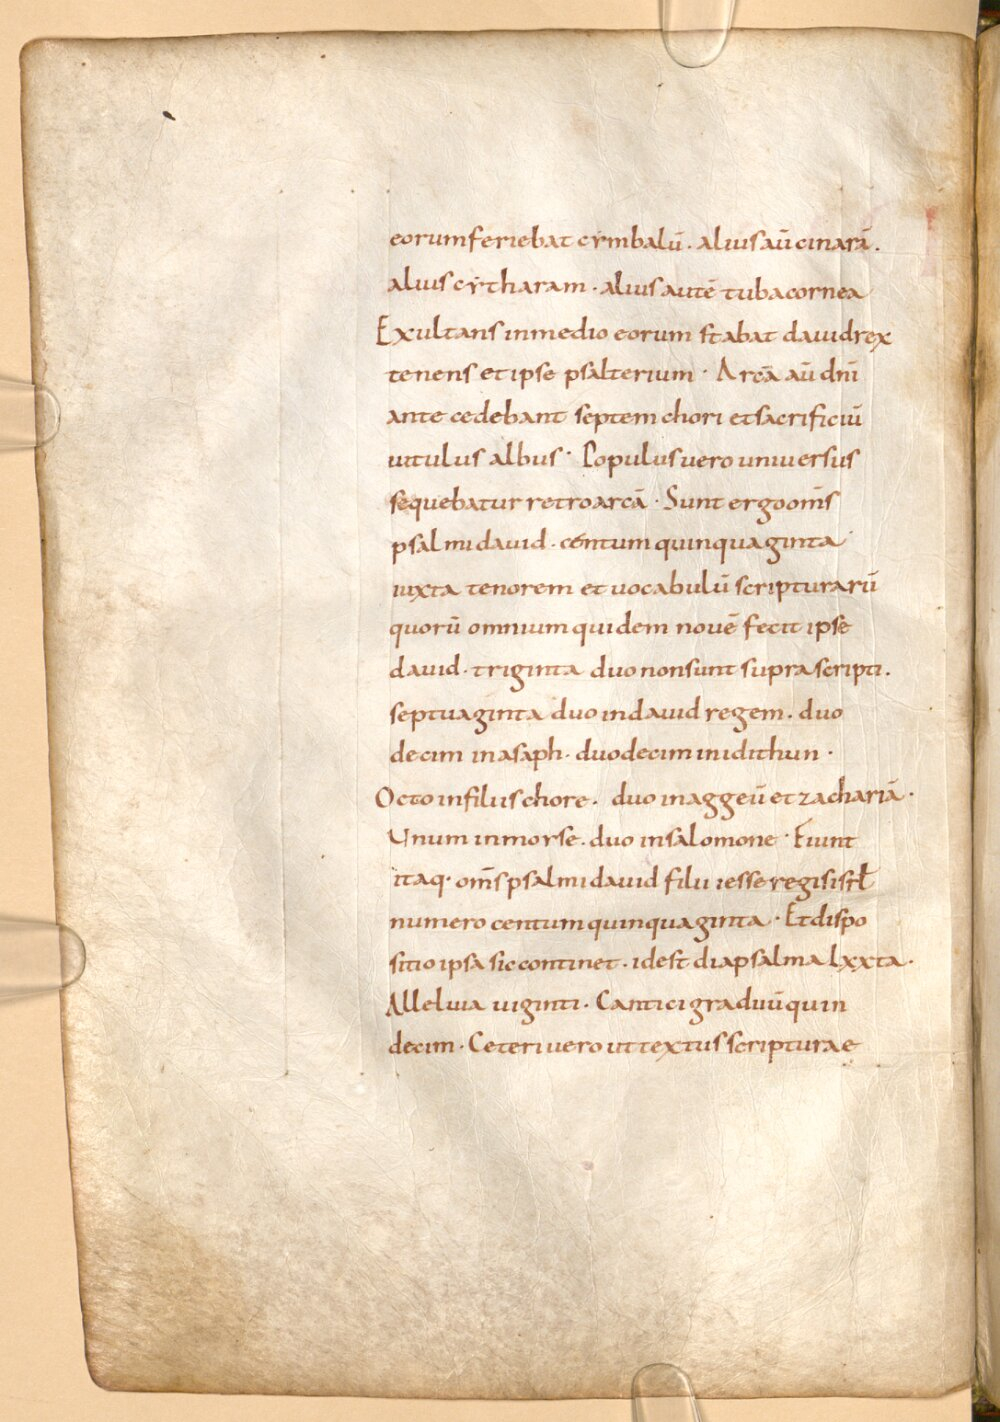 eorum feriebat cymbalū · alius aū cinarā .
alius cytharam · alius autē tuba cornea
Exultans in medio eorum stabat dauid rex
tenens et ipse psalterium · Arcā aū dn̄i
ante cedebant septem chori et sacrificiū
uitulus albus · Populus uero uniuersus
sequebatur retro arcā · Sunt ergo om̄s
psalmi dauid · centum quinquaginta
iuxta tenorem et uocabulū scripturarū
quorū omnium quidem nouē fecit ipse
dauid · triginta duo non sunt suprascripti .
septuaginta duo in dauid regem . duo
decim in asaph · duodecim in idithun ·
Octo in filiis chore . duo in aggeū et zachariā .
Unum in moyse . duo in salomone · Fiunt
itaq· om̄s psalmi dauid filii iesse regis isrł
numero centum quinquaginta · Et dispo
sitio ipsa sic continet . id est diapsalma lxxta .
Alleluia uiginti . Cantici graduū quin
decim . Ceteri uero ut textus scripturae